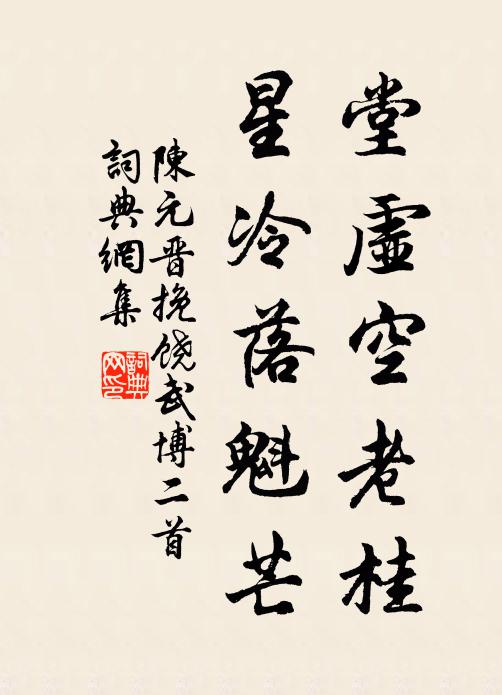 堂虛空老桂
星冷落魁芒
陳元晋挽饒武博二首
詞典網集
詞典網印